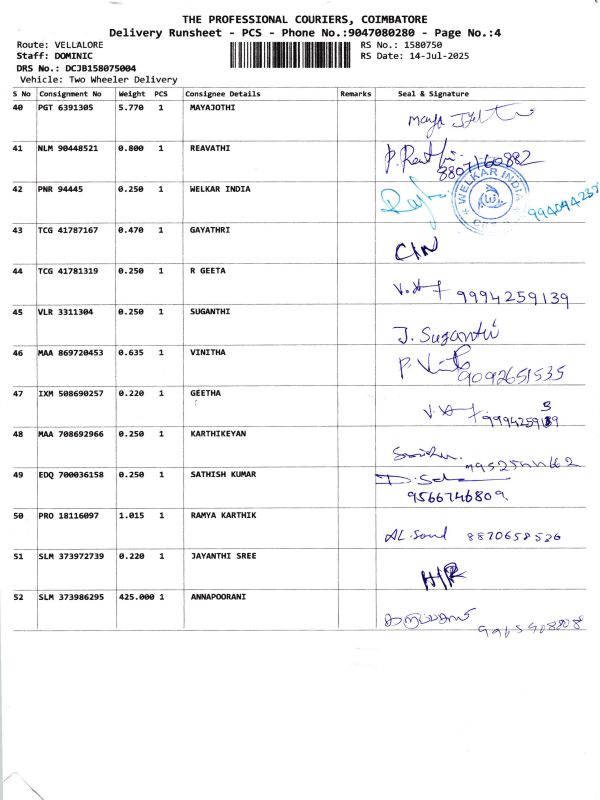 THE PROFESSIONAL COURIERS, COIMBATORE
Delivery Runsheet - PCS - Phone No.:9047080280 - Page No.:4
Route: VELLALORE RS No.: 1580750
Staff: DOMINIC RS Date: 14-Jul-2025
DRS No.: DCJB158075004
Vehicle: Two Wheeler Delivery
S No Consignment No Weight PCS Consignee Details Remarks Seal & Signature
40 PGT 6391305 5.770 1 MAYAJOTHI
Maya
41 NLM 90448521 0.800 1 REAVATHI
8807160882
42 PNR 94445 0.250 1 WELKAR INDIA
WELKAR INDIA
43 TCG 41787167 0.470 1 GAYATHRI
C/N
44 TCG 41781319 0.250 1 R GEETA
9994259139
45 VLR 3311304 0.250 1 SUGANTHI
J. Suganthi
46 MAA 869720453 0.635 1 VINITHA
9092651535
47 IXM 508690257 0.220 1 GEETHA
48 MAA 708692966 0.250 1 KARTHIKEYAN
49 EDQ 700036158 0.250 1 SATHISH KUMAR
9566746809
50 PRO 18116097 1.015 1 RAMYA KARTHIK
8870658526
51 SLM 373972739 0.220 1 JAYANTHI SREE
52 SLM 373986295 425.000 1 ANNAPOORANI